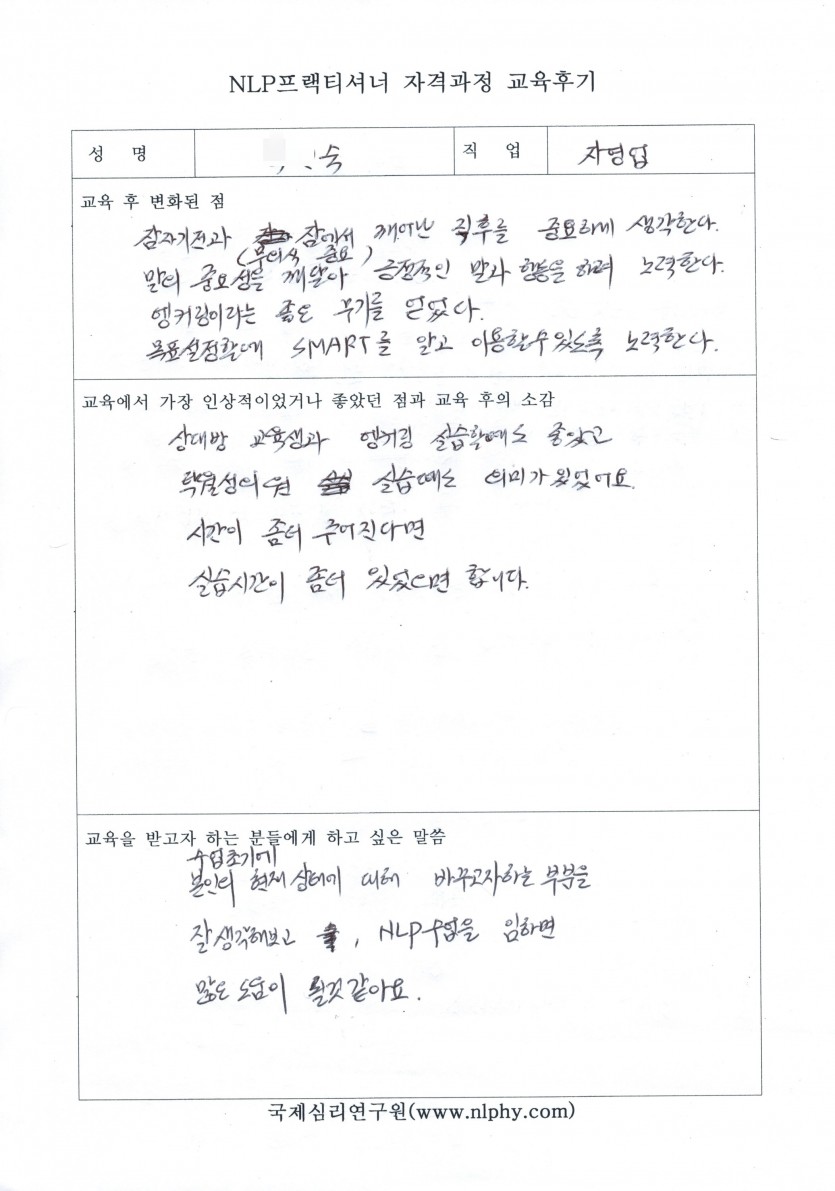 NLP프랙티셔너 자격과정 교육후기
성 명 숙 직 업 자영업
교육 후 변화된 점
잠자기전과 잠에서 깨어난 직후를 중요하게 생각한다.
(무의식 중요)
말의 중요성을 깨달아 긍정적인 말과 행동을 하려 노력한다.
앵커링이라는 좋은 무기를 얻었다.
목표설정할때 SMART를 알고 이용할수있도록 노력한다.
교육에서 가장 인상적이었거나 좋았던 점과 교육 후의 소감
상대방 교육생과 앵커링 실습할때도 좋았고
탁월성의 원 실습때도 의미가 있었어요.
시간이 좀더 주어진다면
실습시간이 좀더 있었으면 합니다.
교육을 받고자 하는 분들에게 하고 싶은 말씀
수업초기에
본인의 현재상태에 대해 바꾸고자하는 부분을
잘생각해보고 , NLP수업을 임하면
많은 도움이 될것같아요.
국제심리연구원(www.nlphy.com)